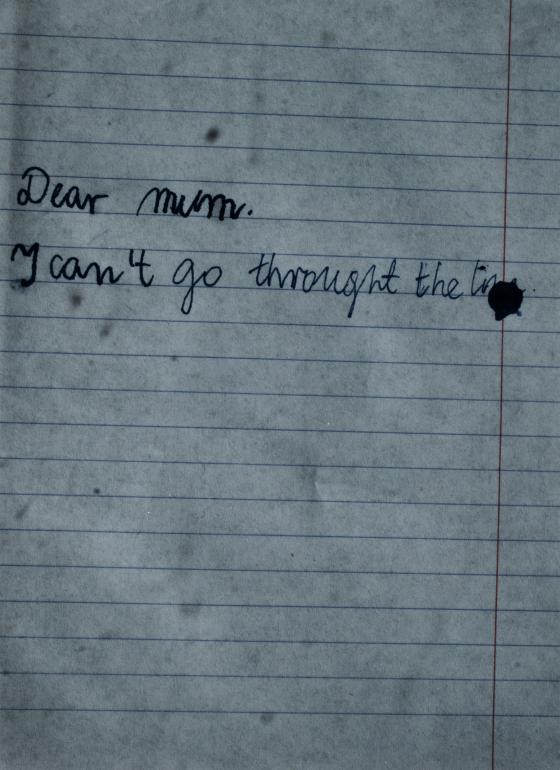 Dear mum.
I can't go throught the